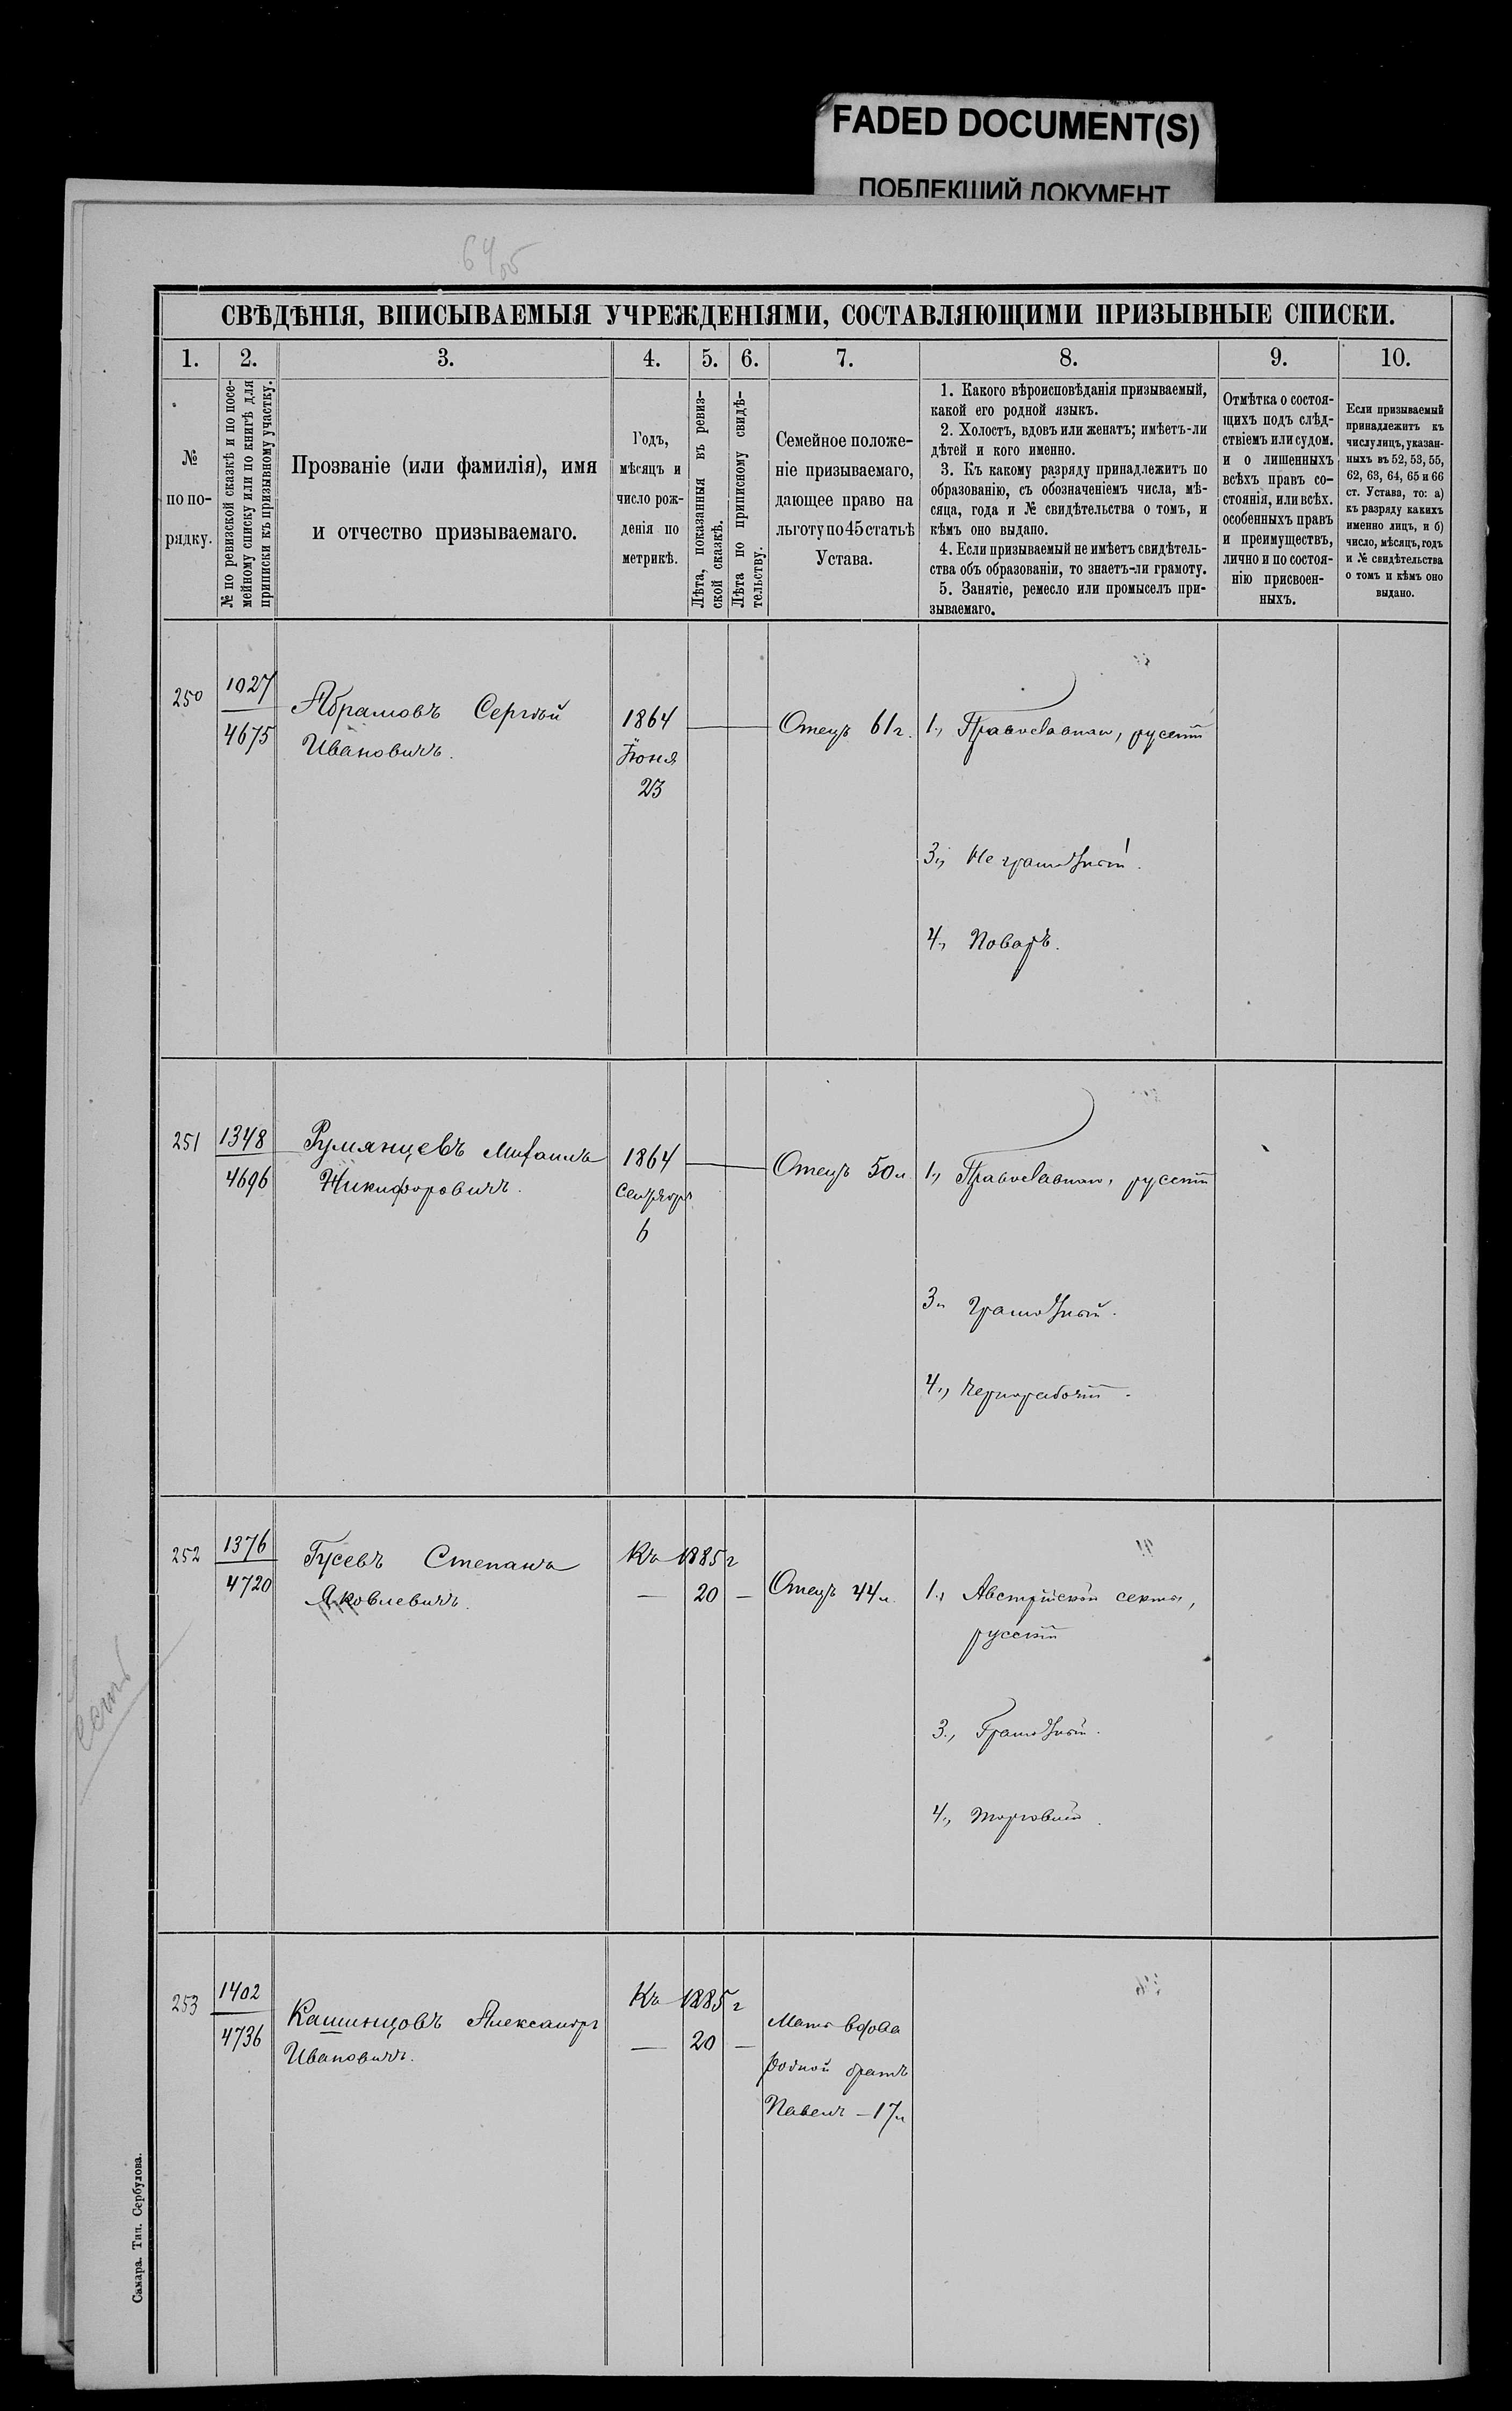 FADED DOCUMENT(S)
ПОБЛЕКШИЙ ДОКУМЕНТ
СВѢДѢНІЯ, ВПИСЫВАЕМЫЯ УЧРЕЖДЕНІЯМИ, СОСТАВЛЯЮЩИМИ ПРИЗЫВНЫЕ СПИСКИ.
1.
2.
3.
4.
5.
6.
7.
8.
9.
10.
№
по по-
рядку.
№ по ревизской сказкѣ и по посе-
мейному списку или по книгѣ для
приписки къ призывному участку.
Прозваніе (или фамилія), имя
и отчество призываемаго.
Годъ,
мѣсяцъ и
число рож-
денія по
метрикѣ.
Лѣта, показанныя въ ревиз-
ской сказкѣ.
Лѣта по приписному свидѣ-
тельству.
Семейное положе-
ніе призываемаго,
дающее право на
льготу по 45 статьѣ
Устава.
1. Какого вѣроисповѣданія призываемый,
какой его родной языкъ.
2. Холостъ, вдовъ или женатъ; имѣетъ-ли
дѣтей и кого именно.
3. Къ какому разряду принадлежитъ по
образованію, съ обозначеніемъ числа, мѣ-
сяца, года и № свидѣтельства о томъ, и
кѣмъ оно выдано.
4. Если призываемый не имѣетъ свидѣтель-
ства объ образованіи, то знаетъ-ли грамоту.
5. Занятіе, ремесло или промыселъ при-
зываемаго.
Отмѣтка о состоя-
щихъ подъ слѣд-
ствіемъ или судом.
и о лишенныхъ
всѣхъ правъ со-
стоянія, или всѣх.
особенныхъ правъ
и преимуществъ,
лично и по состоя-
нію присвоен-
ныхъ.
Если призываемый
принадлежитъ къ
числу лицъ, указан-
ныхъ въ 52, 53, 55,
62, 63, 64, 65 и 66
ст. Устава, то: а)
къ разряду какихъ
именно лицъ, и б)
число, мѣсяцъ, годъ
и № свидѣтельства
о томъ и кѣмъ оно
выдано.
250
1027
4675
Абрамовъ Сергѣй
Ивановичъ.
1864
Іюня
23
Отецъ 61 г.
1., Православнаго, русскій
3., Не грамотный.
4., Поваръ.
251
1348
4696
Румянцевъ Михаилъ
Никифоровичъ.
1864
Сентября
6
Отецъ 50 л.
1., Православнаго, русскій
3., Грамотный.
4., Чернорабочій.
252
1376
4720
Гусевъ Степанъ
Яковлевичъ.
Къ 1885 г
— 20 —
Отецъ 44 л.
1., Австрійской секты,
русскій
3., Грамотный.
4., Торговый.
253
1402
4736
Кашинцовъ Александръ
Ивановичъ.
Къ 1885 г
— 20 —
Мать вдова
родной братъ
Павелъ — 17 л
Самара. Тип. Сербулова.